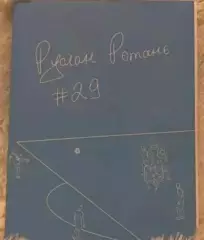 Руслан Ротань
#29